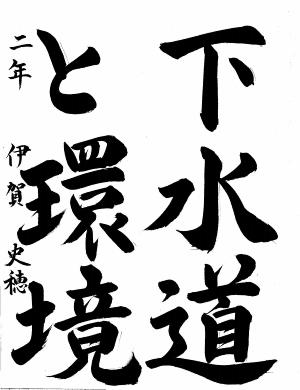 下水道
と環境
二年 伊賀 史穂